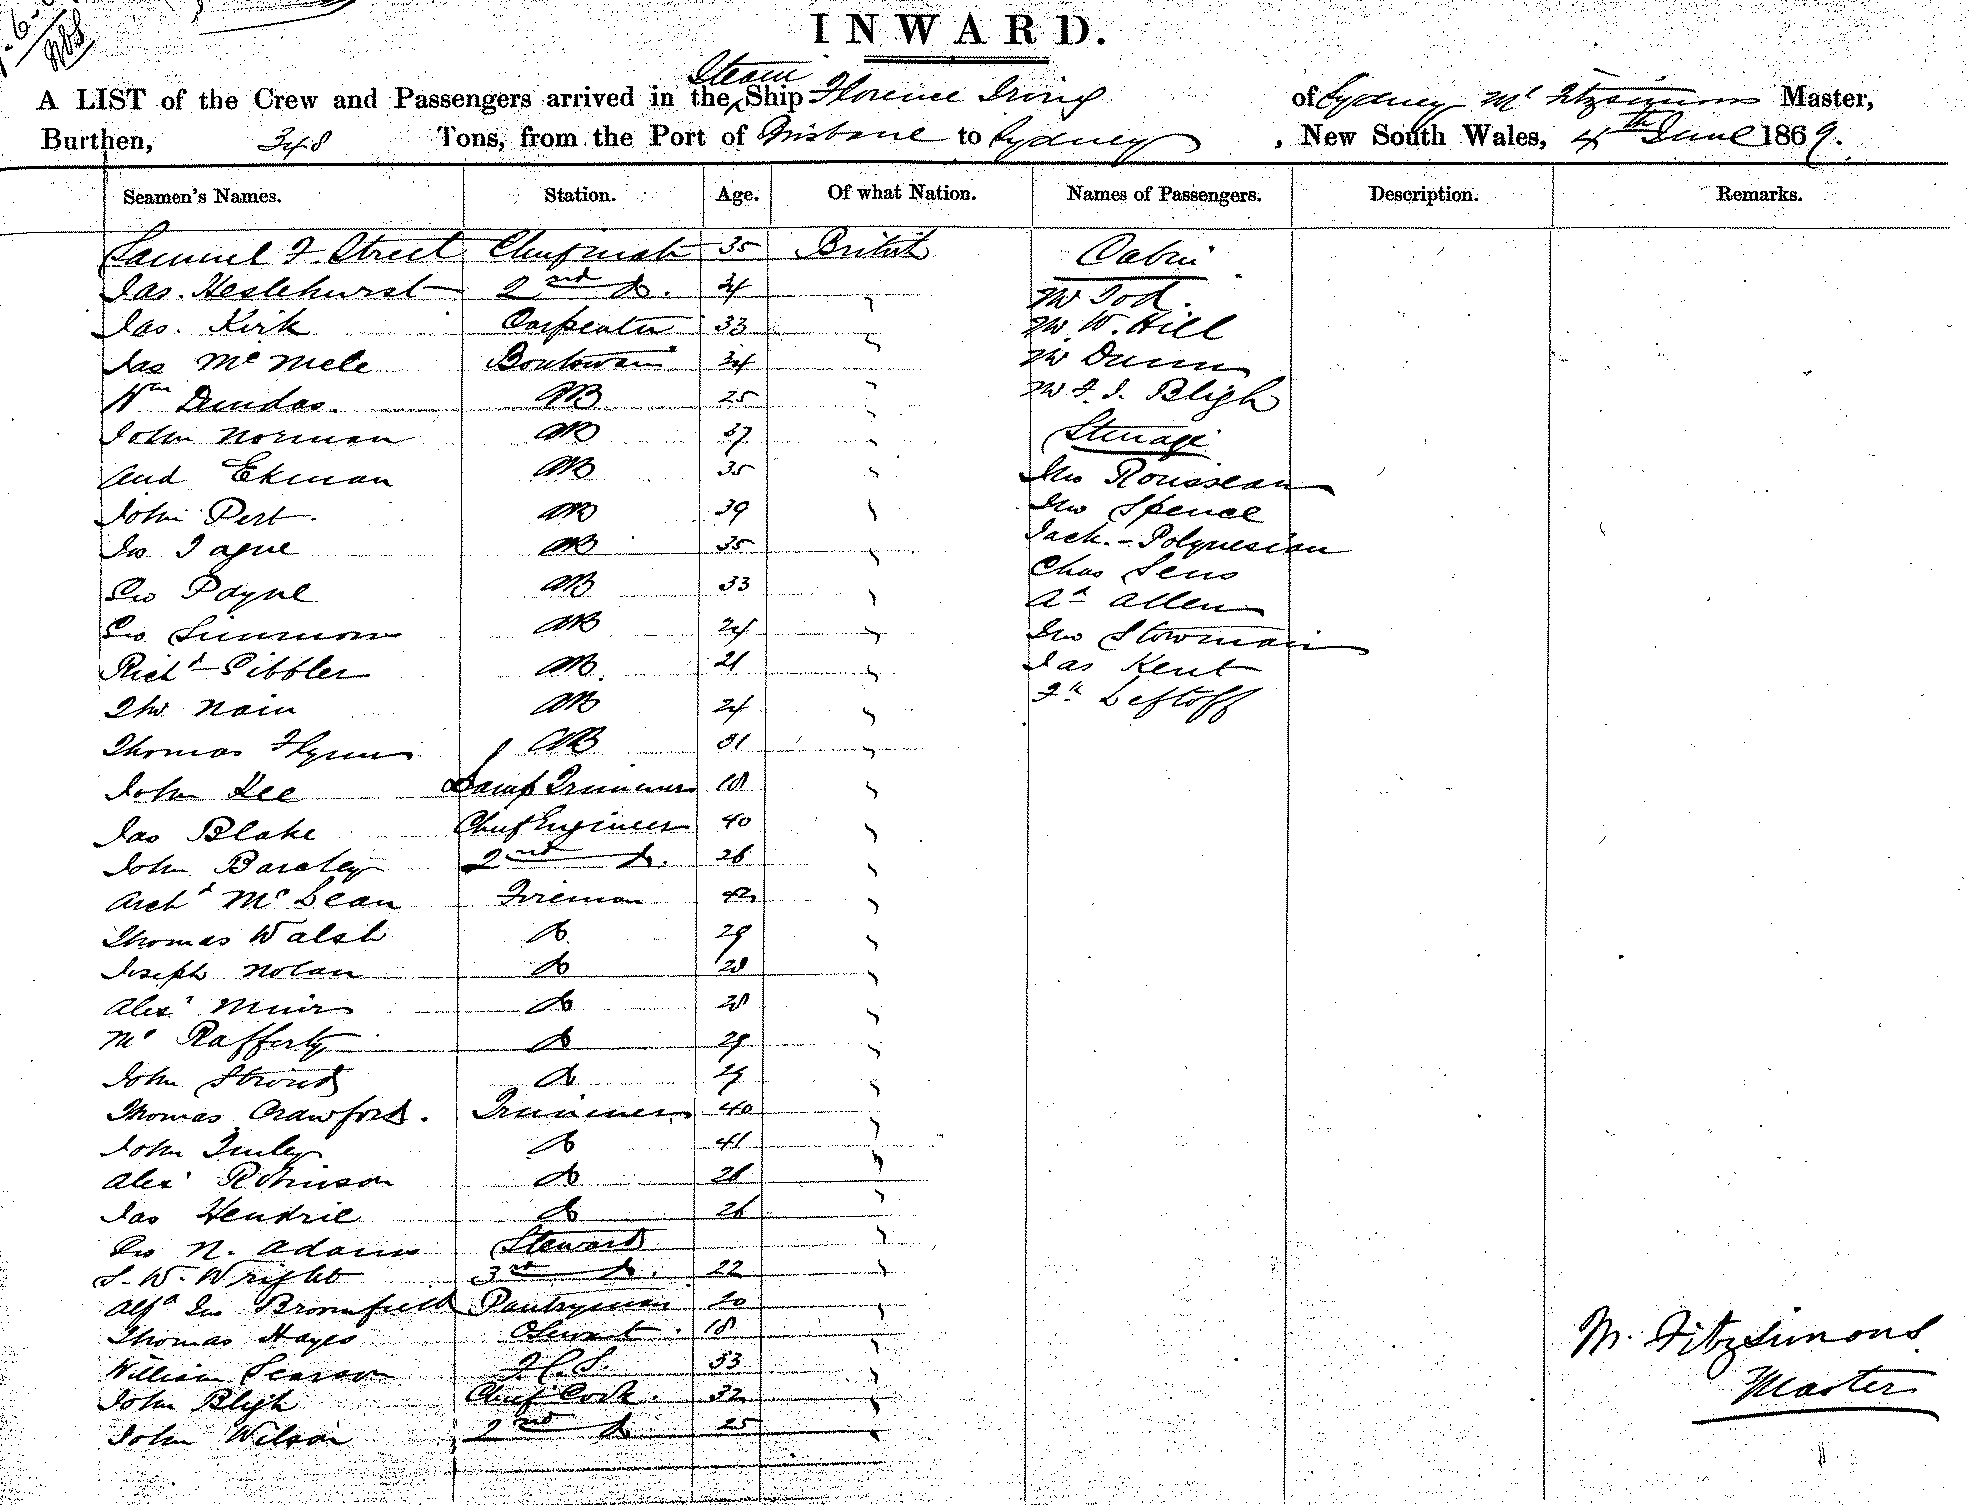 INWARD.
A LIST of the Crew and Passengers arrived in the Steam Ship Florence Irving of Sydney M. Fitzsimons Master,
Burthen, 348 Tons, from the Port of Brisbane to Sydney, New South Wales, 4th June 1869.
Seamen's Names. Station. Age. Of what Nation. Names of Passengers. Description. Remarks.
Samuel F Street Chief mate 35 British Cabin
Jas. Heslehurst 2nd Do. 24 " Mr Tod.
Jas. Kirk Carpenter 33 " Mr W. Hill
Jas Mc Mele Boatswain 34 " Mr Dunn
Wm Dundas. AB 25 " Mr F. J. Bligh
John Norman AB 37 " Steerage
And Ekman AB 35 " Jno Rousseau
John Pert. AB 39 " Jno Spence
Jno Tague AB 35 " Jack. - Polynesian
Geo Payne AB 33 " Chas Sens
Geo Simmons AB 24 " Ad Allen
Richd Pibbler AB. 21 " Jno Stowman
Thos Nain AB 24 " Jas Kent
Thomas Flynn AB 31 " Fk Leftoff
John Kee Lamp Trimmer 18 "
Jas Blake Chief Engineer 40 "
John Barclay 2nd Do. 26 "
Archd Mc Lean Fireman 42 "
Thomas Walsh Do. 29 "
Joseph Nolan Do 28 "
Alexr Muir Do 28 "
Ml Rafferty Do 29 "
John Stroud Do 29 "
Thomas Crawford. Trimmer 40 "
John Turley Do 41 "
Alexr Robinson Do 26 "
Jas Hendrie Do 26 "
Geo N. Adams Steward "
S. W. Wright 3rd Do. 22 "
Alfd Jno Broomfield Pantryman 20 "
Thomas Hayes Servant. 18 "
William Searson F.C.S. 33 "
John Bligh Chief Cook. 32 "
John Wilson 2nd Do 25 "
M. Fitzsimons
Master